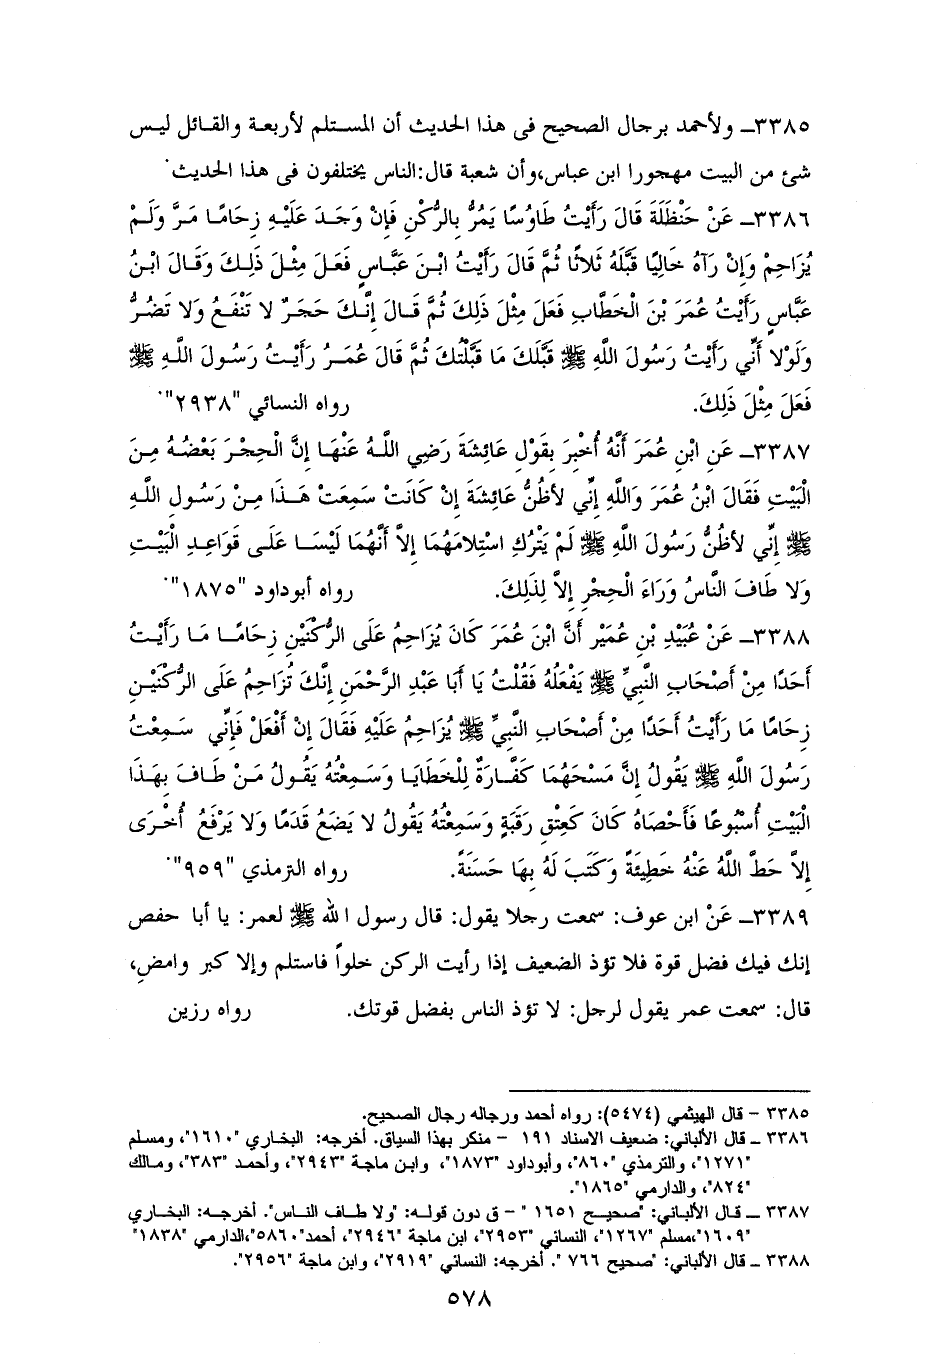 ٣٣٨٥ــ ولأحمد برجال الصحيح فى هذا الحديث أن المستلم لأربعة والقائل ليس
شئ من البيت مهجورا ابن عباس،وأن شعبة قال:الناس يختلفون فى هذا الحديث.
٣٣٨٦ــ عَنْ حَنْظَلَةَ قَالَ رَأَيْتُ طَاوُسًا يَمُرُّ بِالرُّكْنِ فَإِنْ وَجَدَ عَلَيْهِ زِحَامًا مَرَّ وَلَمْ
يُزَاحِمْ وَإِنْ رَآهُ خَالِيًا قَبَّلَهُ ثَلاثًا ثُمَّ قَالَ رَأَيْتُ ابْنَ عَبَّاسٍ فَعَلَ مِثْلَ ذَلِكَ وَقَالَ ابْنُ
عَبَّاسٍ رَأَيْتُ عُمَرَ بْنَ الْخَطَّابِ فَعَلَ مِثْلَ ذَلِكَ ثُمَّ قَالَ إِنَّكَ حَجَرٌ لا تَنْفَعُ وَلا تَضُرُّ
وَلَوْلا أَنِّي رَأَيْتُ رَسُولَ اللَّهِ ﷺ قَبَّلَكَ مَا قَبَّلْتُكَ ثُمَّ قَالَ عُمَرُ رَأَيْتُ رَسُولَ اللَّهِ ﷺ
فَعَلَ مِثْلَ ذَلِكَ. رواه النسائي "٢٩٣٨".
٣٣٨٧ــ عَنِ ابْنِ عُمَرَ أَنَّهُ أُخْبِرَ بِقَوْلِ عَائِشَةَ رَضِي اللَّهُ عَنْهَا إِنَّ الْحِجْرَ بَعْضُهُ مِنَ
الْبَيْتِ فَقَالَ ابْنُ عُمَرَ وَاللَّهِ إِنِّي لأَظُنُّ عَائِشَةَ إِنْ كَانَتْ سَمِعَتْ هَذَا مِنْ رَسُولِ اللَّهِ
ﷺ إِنِّي لأَظُنُّ رَسُولَ اللَّهِ ﷺ لَمْ يَتْرُكِ اسْتِلامَهُمَا إِلاَّ أَنَّهُمَا لَيْسَا عَلَى قَوَاعِدِ الْبَيْتِ
وَلا طَافَ النَّاسُ وَرَاءَ الْحِجْرِ إِلاَّ لِذَلِكَ. رواه أبوداود "١٨٧٥".
٣٣٨٨ــ عَنْ عُبَيْدِ بْنِ عُمَيْرٍ أَنَّ ابْنَ عُمَرَ كَانَ يُزَاحِمُ عَلَى الرُّكْنَيْنِ زِحَامًا مَا رَأَيْتُ
أَحَدًا مِنْ أَصْحَابِ النَّبِيِّ ﷺ يَفْعَلُهُ فَقُلْتُ يَا أَبَا عَبْدِ الرَّحْمَنِ إِنَّكَ تُزَاحِمُ عَلَى الرُّكْنَيْنِ
زِحَامًا مَا رَأَيْتُ أَحَدًا مِنْ أَصْحَابِ النَّبِيِّ ﷺ يُزَاحِمُ عَلَيْهِ فَقَالَ إِنْ أَفْعَلْ فَإِنِّي سَمِعْتُ
رَسُولَ اللَّهِ ﷺ يَقُولُ إِنَّ مَسْحَهُمَا كَفَّارَةٌ لِلْخَطَايَا وَسَمِعْتُهُ يَقُولُ مَنْ طَافَ بِهَذَا
الْبَيْتِ أُسْبُوعًا فَأَحْصَاهُ كَانَ كَعِتْقِ رَقَبَةٍ وَسَمِعْتُهُ يَقُولُ لا يَضَعُ قَدَمًا وَلا يَرْفَعُ أُخْرَى
إِلاَّ حَطَّ اللَّهُ عَنْهُ خَطِيئَةً وَكَتَبَ لَهُ بِهَا حَسَنَةً. رواه الترمذي "٩٥٩".
٣٣٨٩ــ عَنْ ابن عوف: سمعت رجلا يقول: قال رسول الله ﷺ لعمر: يا أبا حفص
إنك فيك فضل قوة فلا تؤذ الضعيف إذا رأيت الركن خلواً فاستلم وإلا كبر وامضِ،
قال: سمعت عمر يقول لرجل: لا تؤذ الناس بفضل قوتك. رواه رزين
٣٣٨٥ - قال الهيثمي (٥٤٧٤): رواه أحمد ورجاله رجال الصحيح.
٣٣٨٦ ــ قال الألباني: ضعيف الاسناد ١٩١ - منكر بهذا السياق. أخرجه: البخاري "١٦١٠"، ومسلم
"١٢٧١"، والترمذي "٨٦٠"، وأبوداود "١٨٧٣"، وابن ماجة "٢٩٤٣"، وأحمد "٣٨٣"، ومالك
"٨٢٤"، والدارمي "١٨٦٥".
٣٣٨٧ ــ قال الألباني: "صحيح ١٦٥١ " - ق دون قوله: "ولا طاف الناس". أخرجه: البخاري
"١٦٠٩"،مسلم "١٢٦٧"، النسائي "٢٩٥٣"، ابن ماجة "٢٩٤٦"، أحمد"٥٨٦٠"،الدارمي "١٨٣٨"
٣٣٨٨ ــ قال الألباني: "صحيح ٧٦٦ ". أخرجه: النسائي "٢٩١٩"، وابن ماجة "٢٩٥٦".
٥٧٨